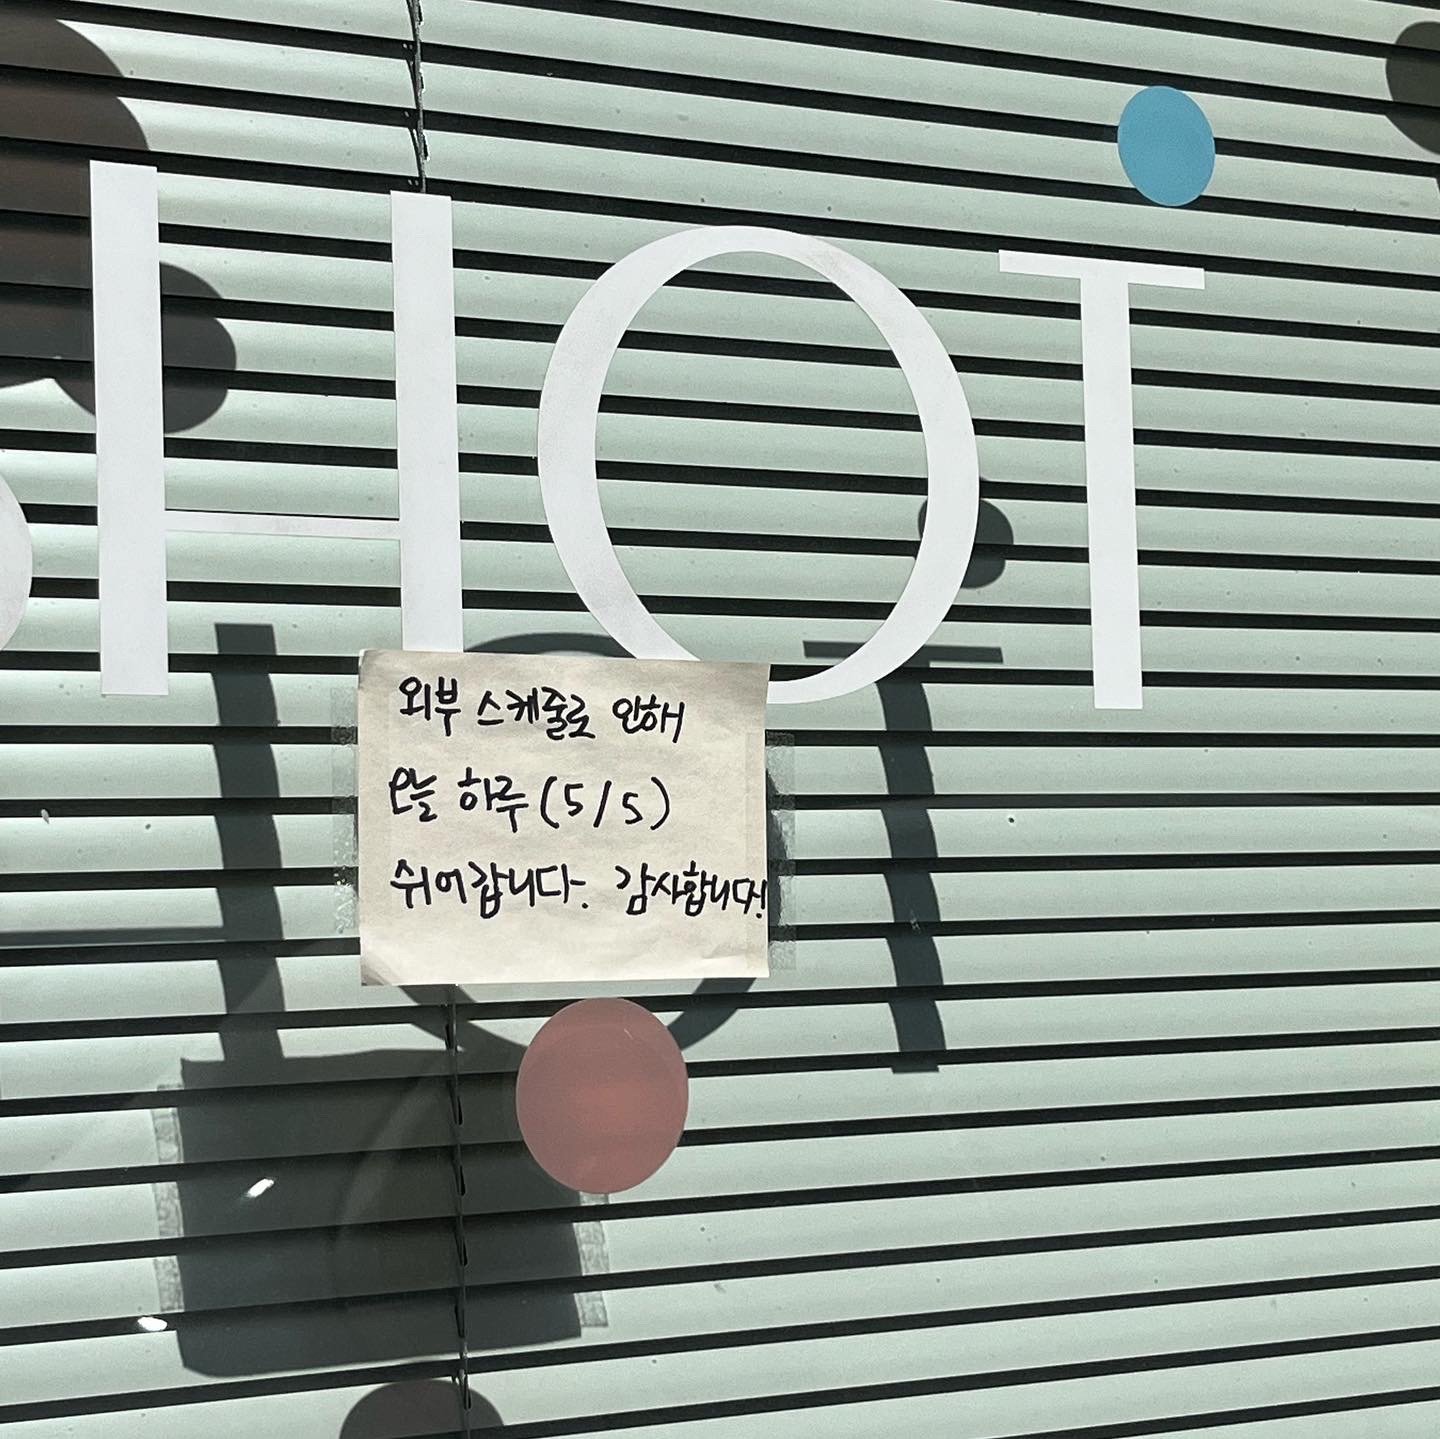 SHOT
외부 스케줄로 인해
오늘 하루 (5/5)
쉬어갑니다. 감사합니다!